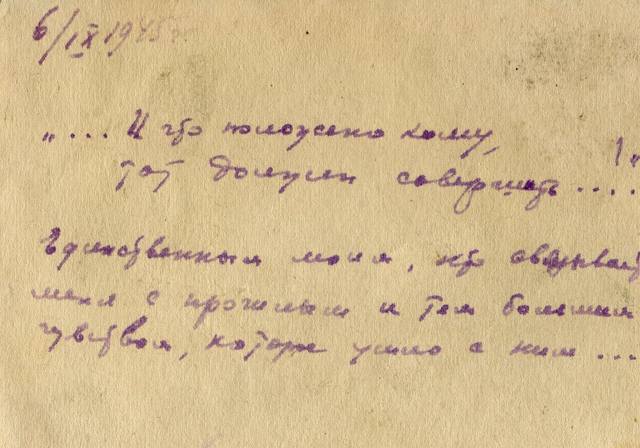 6/IX 1945 г.
„.... И что положено кому,
тот должен совершить ....!"
Единственным моим, кто связывает
меня с прошлым и тем большим
чувством, которое ушло с ним ...